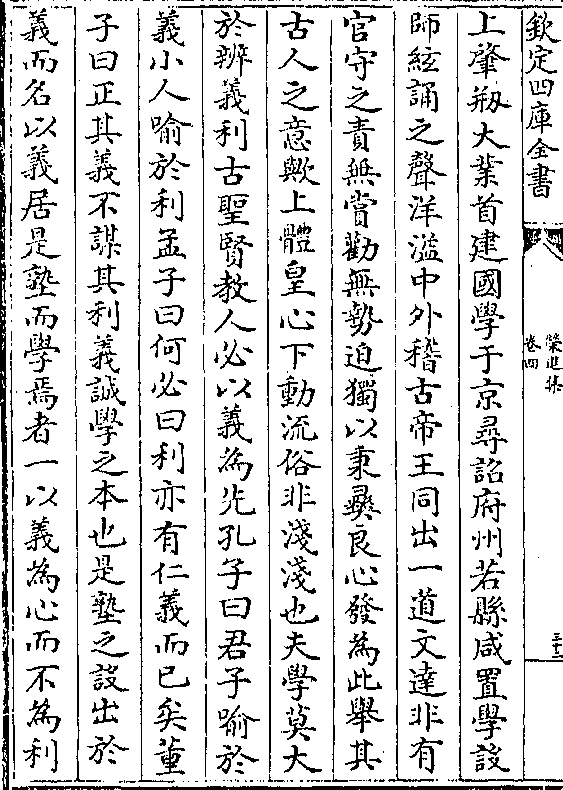 欽定四庫全書
榮進集
卷四
三十二
上肇剏大業首建國學于京尋詔府州若縣咸置學設
師絃誦之聲洋溢中外稽古帝王同出一道文達非有
官守之責無賞勸無勢迫獨以秉彛良心發為此舉其
古人之意歟上體皇心下動流俗非淺淺也夫學莫大
於辨義利古聖賢教人必以義為先孔子曰君子喻於
義小人喻於利孟子曰何必曰利亦有仁義而已矣董
子曰正其義不謀其利義誠學之本也是塾之設出於
義而名以義居是塾而學焉者一以義為心而不為利